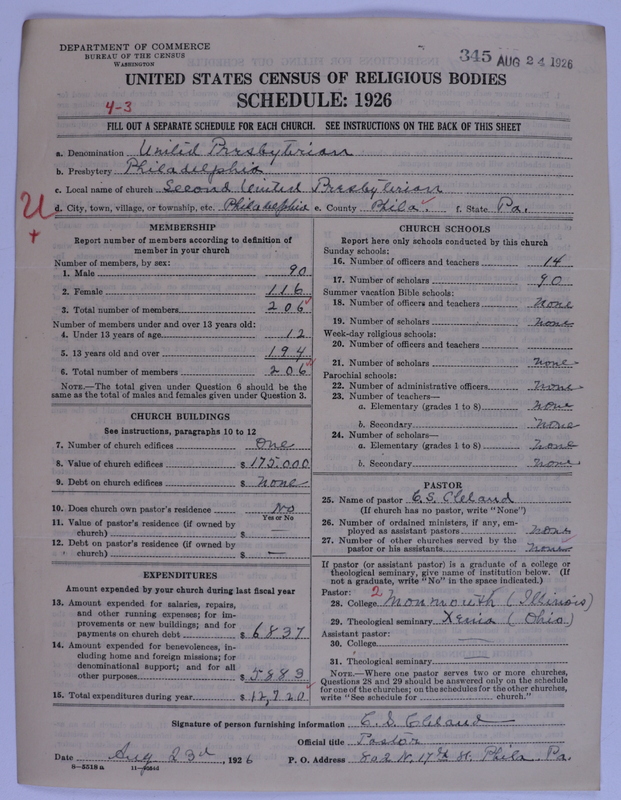 DEPARTMENT OF COMMERCE
BUREAU OF THE CENSUS
WASHINGTON
345 AUG 24 1926
UNITED STATES CENSUS OF RELIGIOUS BODIES
SCHEDULE: 1926
4-3
FILL OUT A SEPARATE SCHEDULE FOR EACH CHURCH. SEE INSTRUCTIONS ON THE BACK OF THIS SHEET
a. Denomination United Presbyterian
b. Presbytery Philadelphia
c. Local name of church Second United Presbyterian
U
d. City, town, village, or township, etc. Philadelphia e. County Phila. f. State Pa.
MEMBERSHIP
Report number of members according to definition of
member in your church
Number of members, by sex:
1. Male 90
2. Female 116
3. Total number of members 206
Number of members under and over 13 years old:
4. Under 13 years of age 12
5. 13 years old and over 194
6. Total number of members 206
NOTE.—The total given under Question 6 should be the
same as the total of males and females given under Question 3.
CHURCH BUILDINGS
See instructions, paragraphs 10 to 12
7. Number of church edifices One
8. Value of church edifices $ 175.000
9. Debt on church edifices $ None
10. Does church own pastor's residence No
Yes or No
11. Value of pastor's residence (if owned by
church) $ —
12. Debt on pastor's residence (if owned by
church) $ —
EXPENDITURES
Amount expended by your church during last fiscal year
13. Amount expended for salaries, repairs,
and other running expenses; for im-
provements or new buildings; and for
payments on church debt $ 6837
14. Amount expended for benevolences, in-
cluding home and foreign missions; for
denominational support; and for all
other purposes $ 5883
15. Total expenditures during year $ 12,720
CHURCH SCHOOLS
Report here only schools conducted by this church
Sunday schools:
16. Number of officers and teachers 14
17. Number of scholars 90
Summer vacation Bible schools:
18. Number of officers and teachers None
19. Number of scholars None
Week-day religious schools:
20. Number of officers and teachers
21. Number of scholars None
Parochial schools:
22. Number of administrative officers None
23. Number of teachers—
a. Elementary (grades 1 to 8) None
b. Secondary None
24. Number of scholars—
a. Elementary (grades 1 to 8) None
b. Secondary None
PASTOR
25. Name of pastor C. S. Cleland
(If church has no pastor, write "None")
26. Number of ordained ministers, if any, em-
ployed as assistant pastors None
27. Number of other churches served by the
pastor or his assistants None
If pastor (or assistant pastor) is a graduate of a college or
theological seminary, give name of institution below. (If
not a graduate, write "No" in the space indicated.)
Pastor: 2
28. College Monmouth (Illinois)
29. Theological seminary Xenia (Ohio.)
Assistant pastor:
30. College —
31. Theological seminary —
NOTE.—Where one pastor serves two or more churches,
Questions 28 and 29 should be answered only on the schedule
for one of the churches; on the schedules for the other churches,
write "See schedule for church."
Signature of person furnishing information C. S. Cleland
Official title Pastor
Date Aug 23d, 1926 P. O. Address 802 N. 17th St. Phila. Pa.
8—5518 a